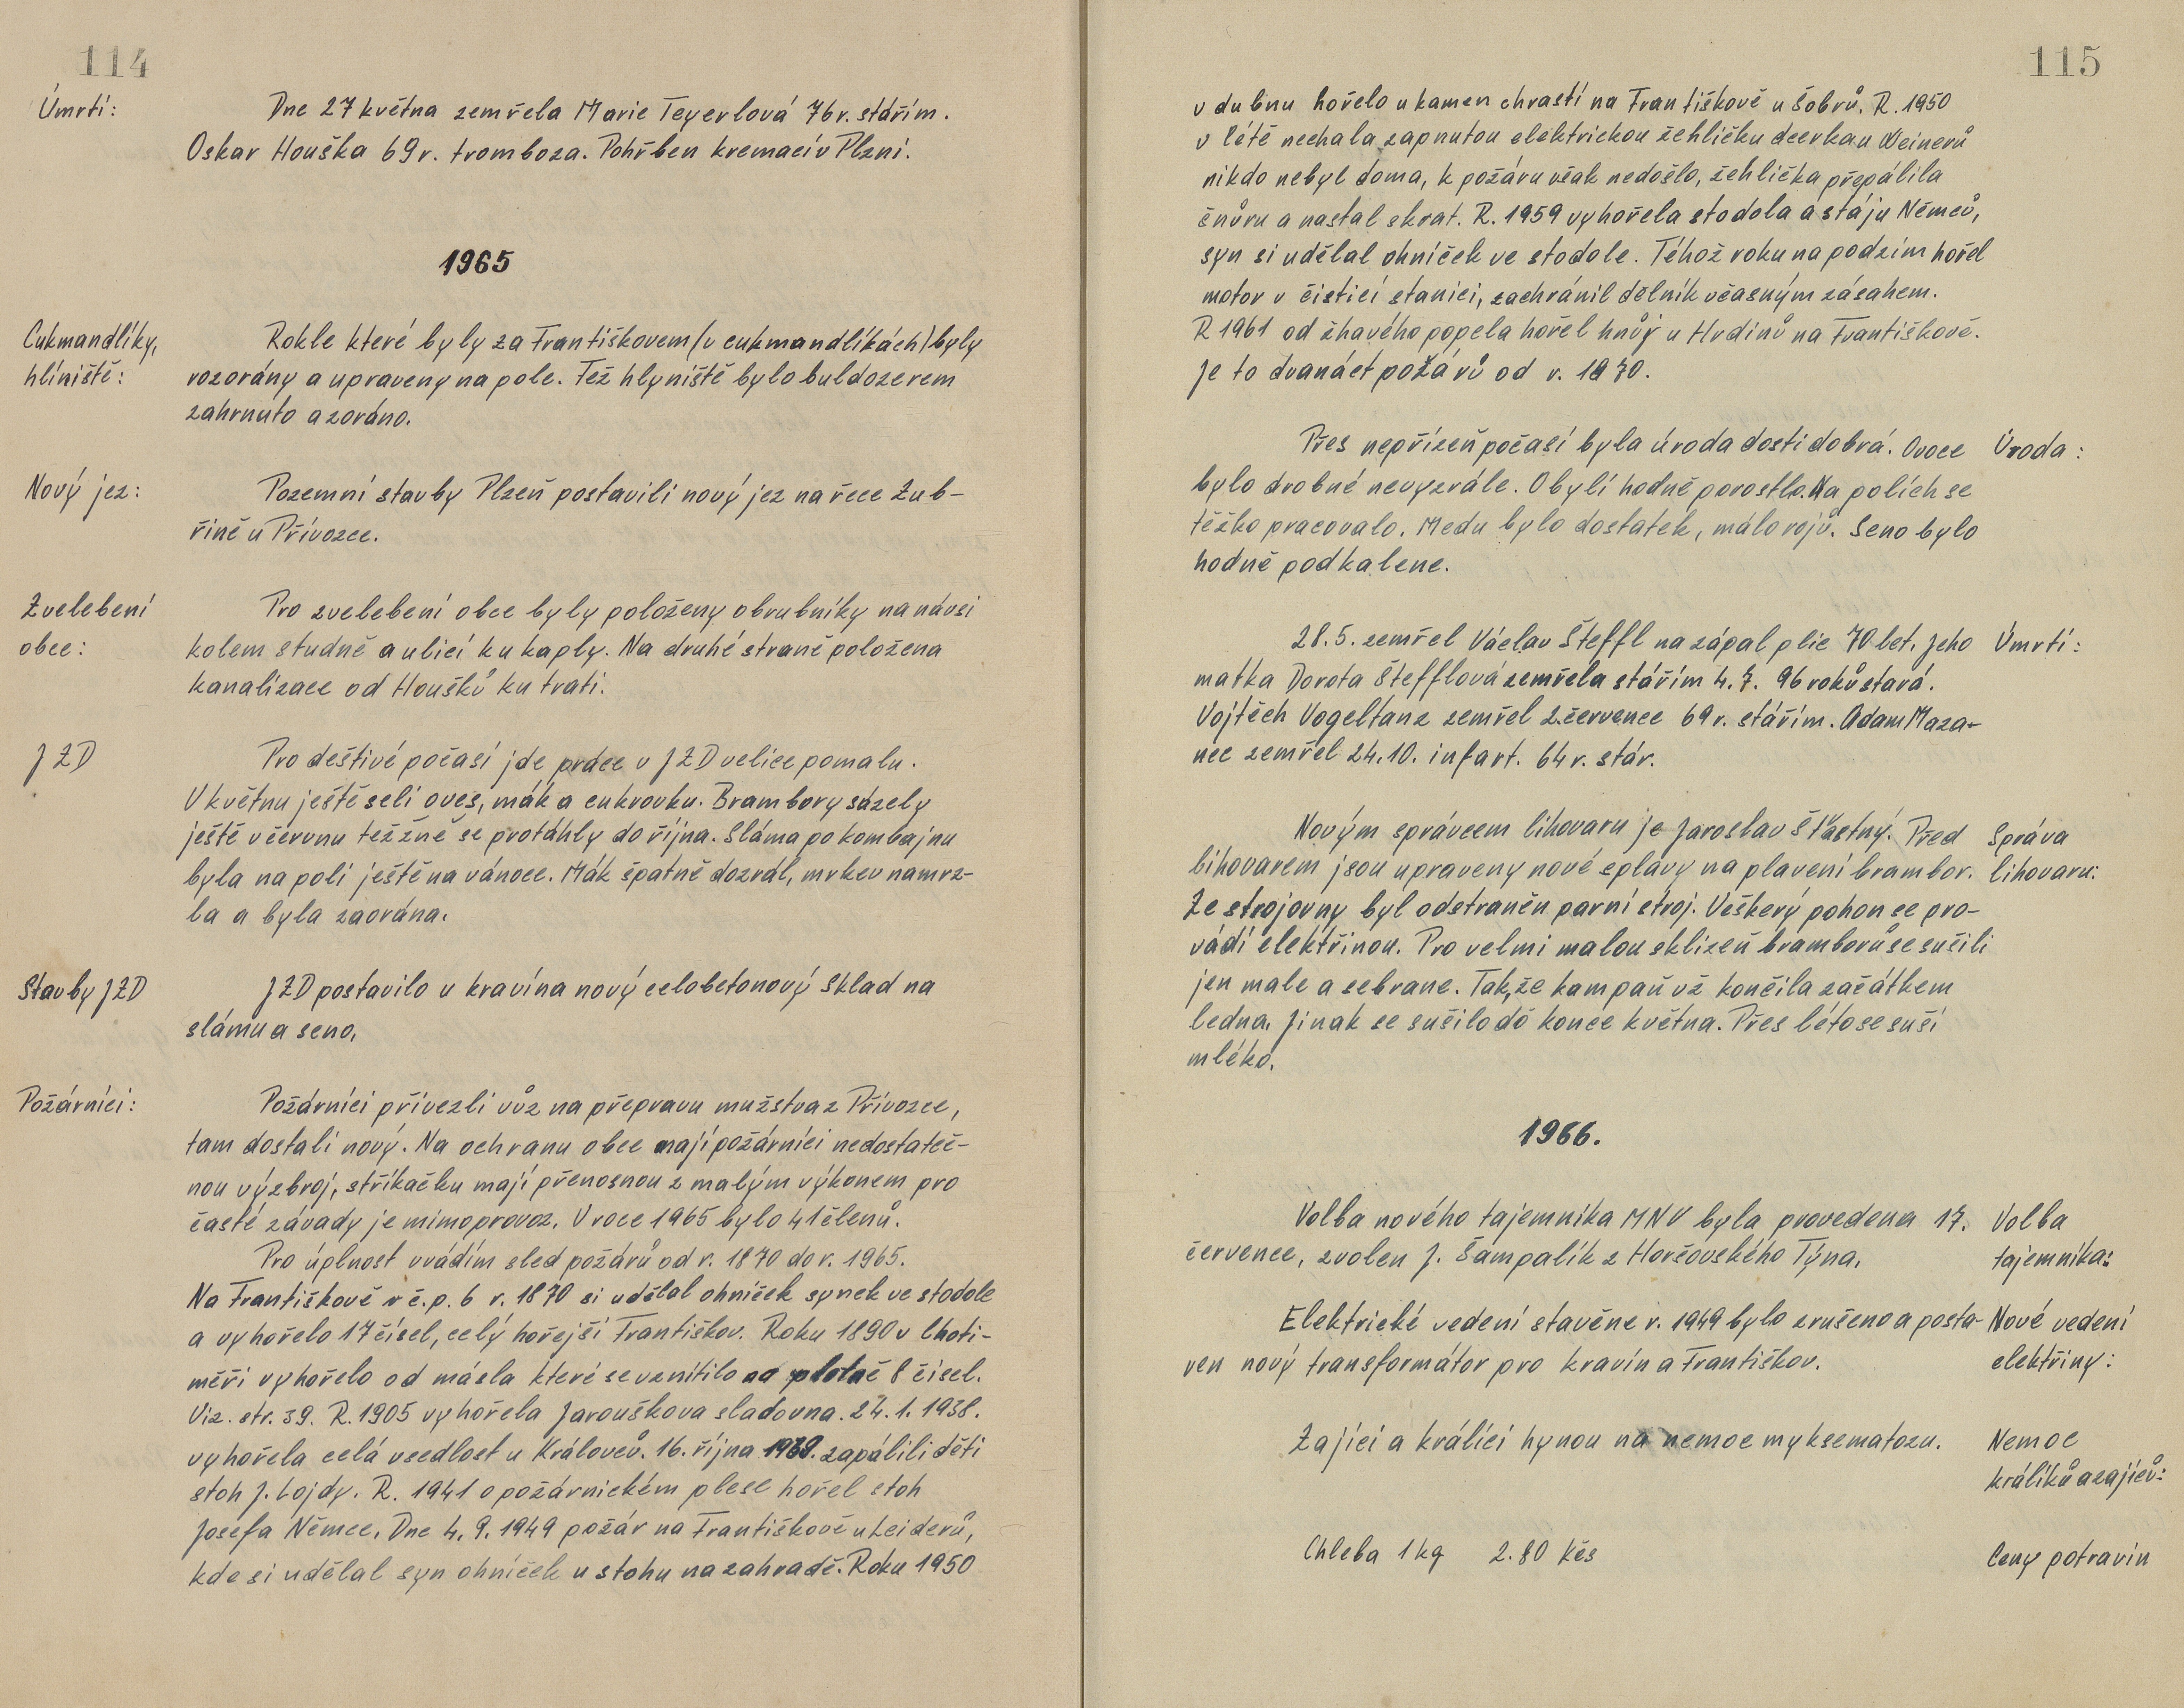 114
Úmrtí:
Dne 27 května zemřela Marie Teyerlová 76 r. stářím.
Oskar Houška 69 r. tromboza. Pohřben kremací v Plzni.
1965
Cukmandlíky,
hliniště:
Rokle které byly za Františkovem (v cukmandlíkách) byly
rozorány a upraveny na pole. Též hlyniště bylo buldozerem
zahrnuto a zoráno.
Nový jez:
Pozemní stavby Plzeň postavili nový jez na řece Zub-
řině u Přívozce.
Zvelebení
obce:
Pro zvelebení obce byly položeny obrubníky na návsi
kolem studně a ulicí ku kaply. Na druhé straně položena
kanalizace od Houšků ku trati.
JZD
Pro deštivé počasí jde prace v JZD velice pomalu.
V květnu ještě seli oves, mák a cukrovku. Brambory sázely
ještě v červnu též žně se protáhly do října. Sláma po kombajnu
byla na poli ještě na vánoce. Mák špatně dozrál, mrkev namrz-
la a byla zaorána.
Stavby JZD
JZD postavilo u kravína nový celobetonový sklad na
slámu a seno.
Požárníci:
Požárníci přivezli vůz na přepravu mužstva z Přívozce,
tam dostali nový. Na ochranu obce mají požárníci nedostateč-
nou výzbroj, stříkačku mají přenosnou z malým výkonem pro
časté závady je mimo provoz. V roce 1965 bylo 41 členů.
Pro úplnost uvádím sled požárů od r. 1870 do r. 1965.
Na Františkově v č.p. 6 r. 1870 si udělal ohníček synek ve stodole
a vyhořelo 17 čísel, celý hořejší Františkov. Roku 1890 v Choti-
měři vyhořelo od másla které se vznítilo na plotně 8 čísel.
Viz. str. 39. R. 1905 vyhořela Jarouškova sladovna. 24. 1. 1938.
vyhořela celá usedlost u Královců. 16. října 1939. zapálili děti
stoh J. Lojdy. R. 1941 o požárnickém plese hořel stoh
Josefa Němce. Dne 4. 9. 1949 požár na Františkově u Leiderů,
kde si udělal syn ohníček u stohu na zahradě. Roku 1950
115
v dubnu hořelo u kamen chrastí na Františkově u Šobrů. R. 1950
v létě nechala zapnutou elektrickou žehličku dcerka u Weinerů
nikdo nebyl doma, k požáru však nedošlo, žehlička přepálila
šnůru a nastal skrat. R. 1959 vyhořela stodola a stáju Němců,
syn si udělal ohníček ve stodole. Téhož roku na podzim hořel
motor v čistící stanici, zachránil dělník včasným zásahem.
R 1961 od žhavého popela hořel hnůj u Hrdinů na Františkově.
Je to dvanáct požárů od r. 1870.
Přes nepřízeň počasí byla úroda dosti dobrá. Ovoce
Úroda:
bylo drobné nevyzrále. Obylí hodně porostlo. Na polích se
těžko pracovalo. Medu bylo dostatek, málo rojů. Seno bylo
hodně podkalene.
28. 5. zemřel Václav Šteffl na zápal plic 70 let. Jeho
Úmrtí:
matka Dorota Štefflová zemřela stářím 4. 7. 96 roků stará.
Vojtěch Vogeltanz zemřel 2. července 69 r. stářím. Adam Maza-
nec zemřel 24. 10. infart. 64 r. stár.
Novým správcem lihovaru je Jaroslav Šťastný. Před
Správa
lihovaru:
lihovarem jsou upraveny nové splávy na plavení brambor.
Ze strojovny byl odstraněn parní stroj. Veškerý pohon se pro-
vádí elektřinou. Pro velmi malou sklizeň bramborů se sušili
jen male a sebrane. Tak, že kampaň už končila začátkem
ledna. Jinak se sušilo dó konce května. Přes léto se suší
mléko.
1966.
Volba nového tajemníka MNV byla provedena 17.
Volba
tajemníka:
července, zvolen J. Šampalík z Horšovského Týna.
Elektrické vedení stavěne r. 1949 bylo zrušeno a posta-
Nové vedení
elektřiny:
ven nový transformátor pro kravín a Františkov.
Zajíci a králíci hynou na nemoc myksematozu.
Nemoc
králíků a zajíců:
Chleba 1 kg 2.80 Kčs
Ceny potravin